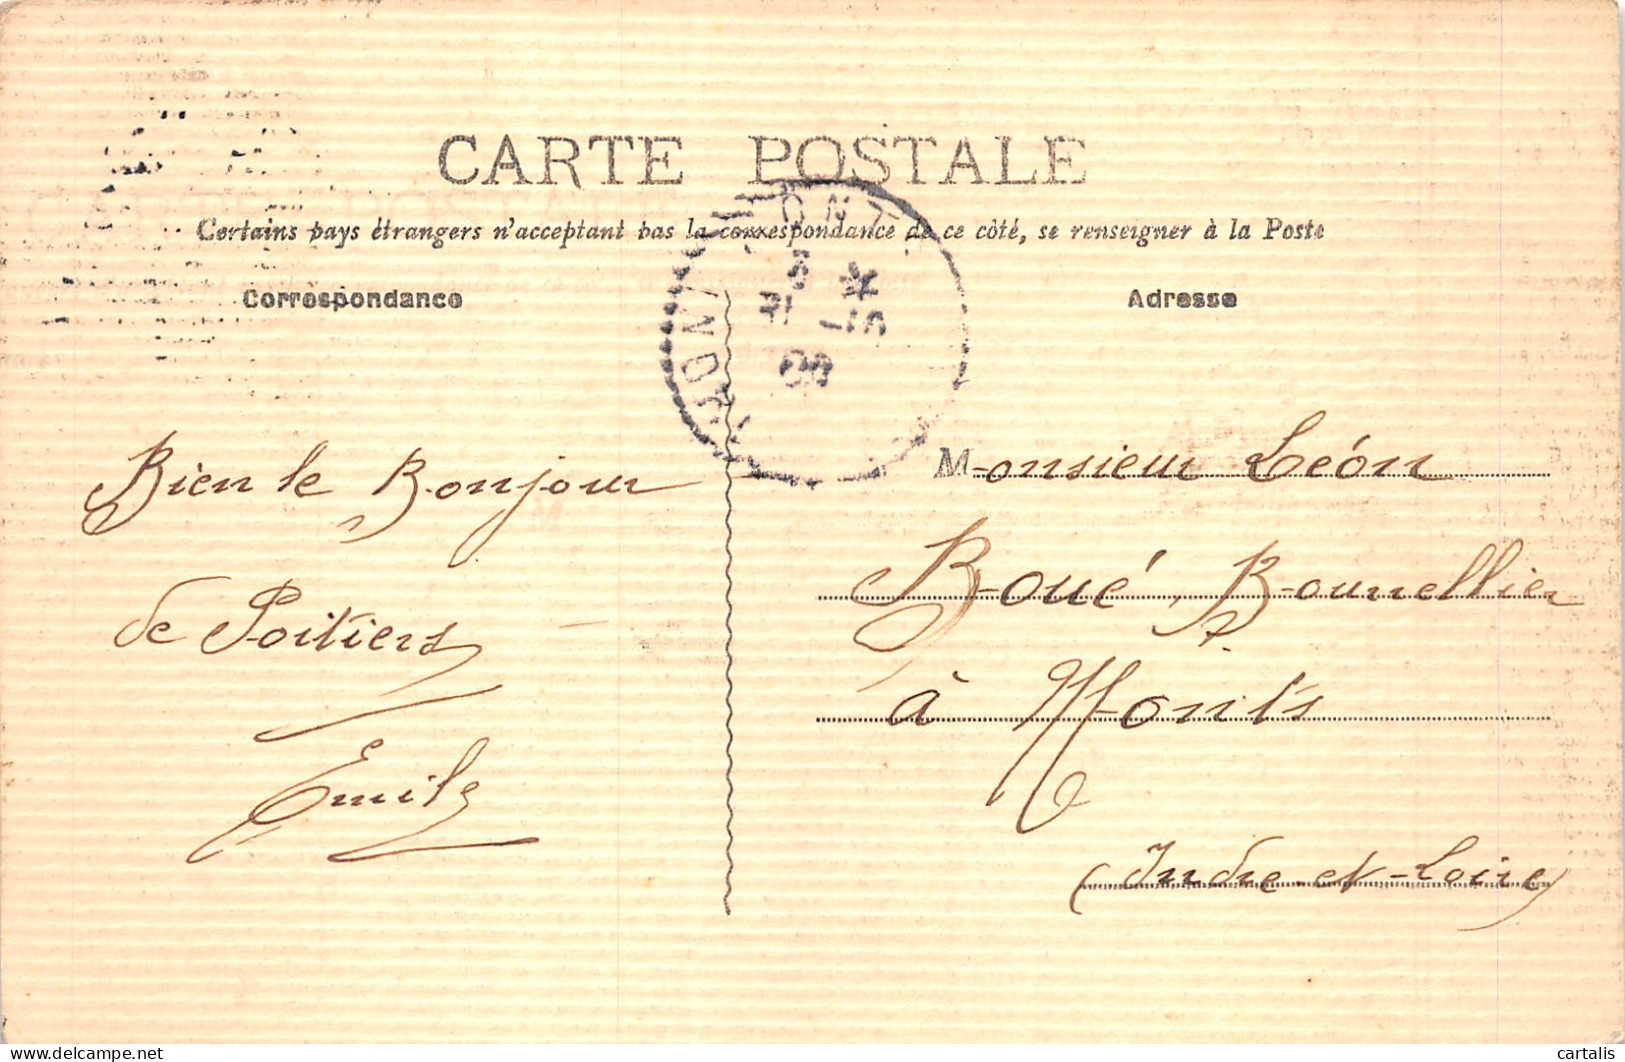 CARTE POSTALE
Certains pays étrangers n'acceptant pas la correspondance de ce côté, se renseigner à la Poste
Correspondance
Adresse
Bien le Bonjour
de Poitiers
Emile
Monsieur Léon
Roué, Bourrellier
à Monts
(Indre-et-Loire)
delcampe.net
cartalis